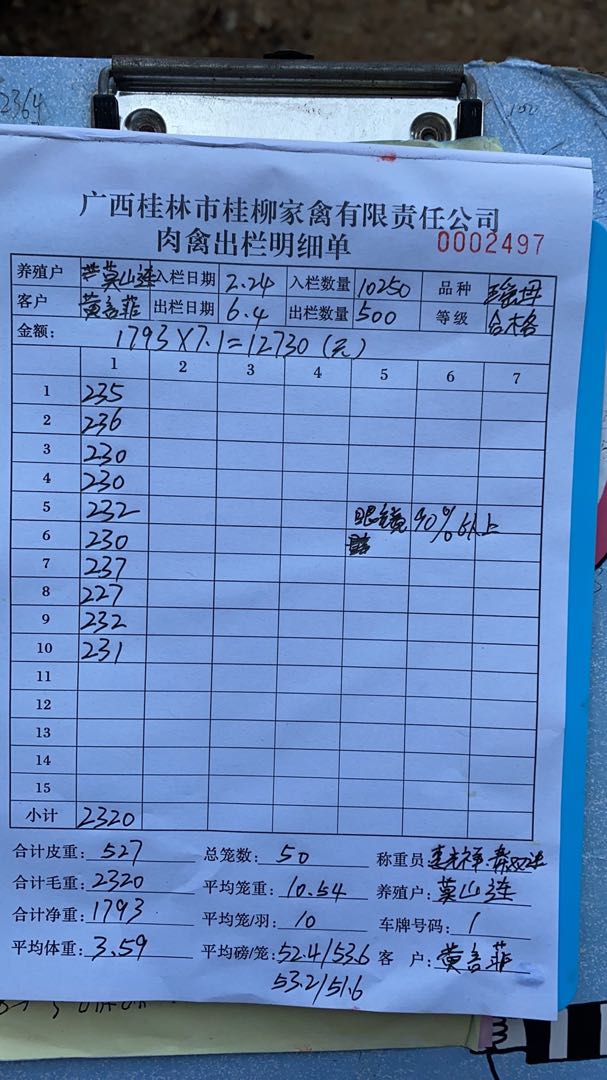 2364
广西桂林市桂柳家禽有限责任公司
肉禽出栏明细单 0002497
养殖户 莫山连 入栏日期 2.24 入栏数量 10250 品种
客户 黄言菲 出栏日期 6.4 出栏数量 500 等级 合格
金额: 1793×7.1=12730(元)
1 2 3 4 5 6 7
1 235
2 236
3 230
4 230
5 232 眼镜90%以上
6 230
7 237
8 227
9 232
10 231
11
12
13
14
15
小计 2320
合计皮重: 527 总笼数: 50 称重员
合计毛重: 2320 平均笼重: 10.54 养殖户: 莫山连
合计净重: 1793 平均笼/羽: 10 车牌号码: 1
平均体重: 3.59 平均磅/笼: 52.4/53.6 客户: 黄言菲
53.2/51.6